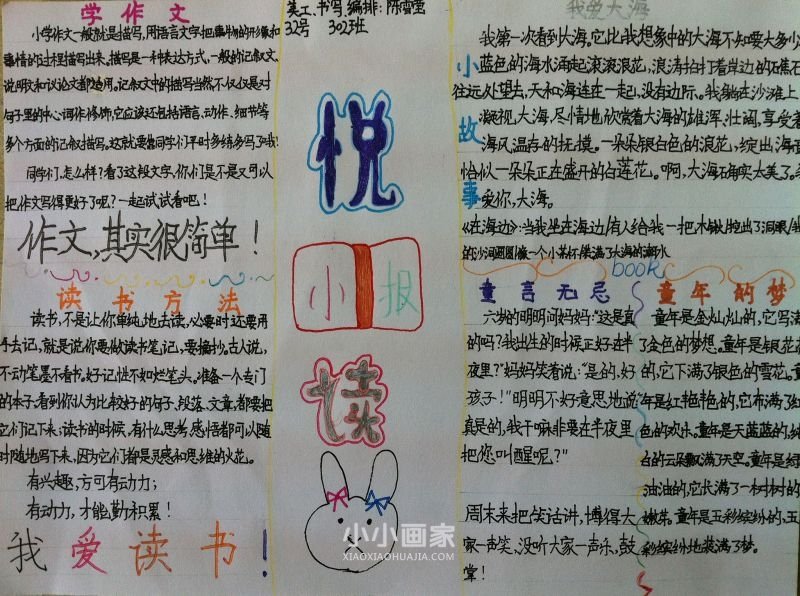 学作文
小学作文一般就是描写,用语言文字把事物的形象和
事情的过程描写出来。描写是一种表达方式,一般的记叙文、
说明文和议论文都边用。记叙文中的描写当然不仅仅是对
句子里的中心词作修饰,它应该还包括语言、动作、细节等
多个方面的记叙描写。这就要靠同学们平时多练多写了哦!
同学们,怎么样?看了这段文字,你们是不是又可以
把作文写得更好了呢?一起试试看吧!
作文,其实很简单!
读书方法
读书,不是让你单纯地去读,必要时还要用
手去记,就是说你要做读书笔记,要摘抄。古人说,
不动笔墨不看书。好记性不如烂笔头。准备一个专门
的本子,看到你认为比较好的句子、段落、文章,都要把
它们记下来,读书的时候,有什么思考、感悟都可以随
时随地写下来,因为它们都是灵感和思维的火花。
有兴趣,方可有动力;
有动力,才能勤积累!
我爱读书!
美工、书写、编排:陈雪莹
32号 302班
悦
小报
读
小小画家
XIAOXIAOHUAJIA.COM
我爱大海
小故事
我第一次看到大海。它比我想象中的大海不知要大多少
蓝色的海水涌起滚滚浪花,浪涛拍打着岸边的礁石
往远处望去,天和海连在一起,没有边际。我躺在沙滩上
凝视,大海,尽情地欣赏着大海的雄浑、壮阔,享受着
海风温存的抚摸。一朵朵银白色的浪花,绽出海面
恰似一朵朵正在盛开的白莲花。啊,大海确实太美了。我
爱你,大海。
《在海边》:当我坐在海边/有人给我一把木锹/挖出了洞眼/我
的沙洞圆圆像一个小茶杯/装满了大海的潮水
book
童言无忌
六岁的明明问妈妈:“这是真
的吗?我出生的时候正好在半
夜里?”妈妈笑着说:“是的,好
孩子!”明明不好意思地说
真是的,我干嘛非要在半夜里
把您叫醒呢?”
周末来把笑话讲,博得大
家一声笑、没听大家一声乐,鼓
掌!
童年的梦
童年是金灿灿的,它写满
了金色的梦想。童年是银花花
的,它下满了银色的雪花。童
年是红艳艳的,它布满了红
色的欢乐。童年是天蓝蓝的,纯
白的云朵飘满了天空。童年是绿
油油的,它长满了一树树的
嫩芽。童年是五彩缤纷的,五
彩缤纷地装满了梦。